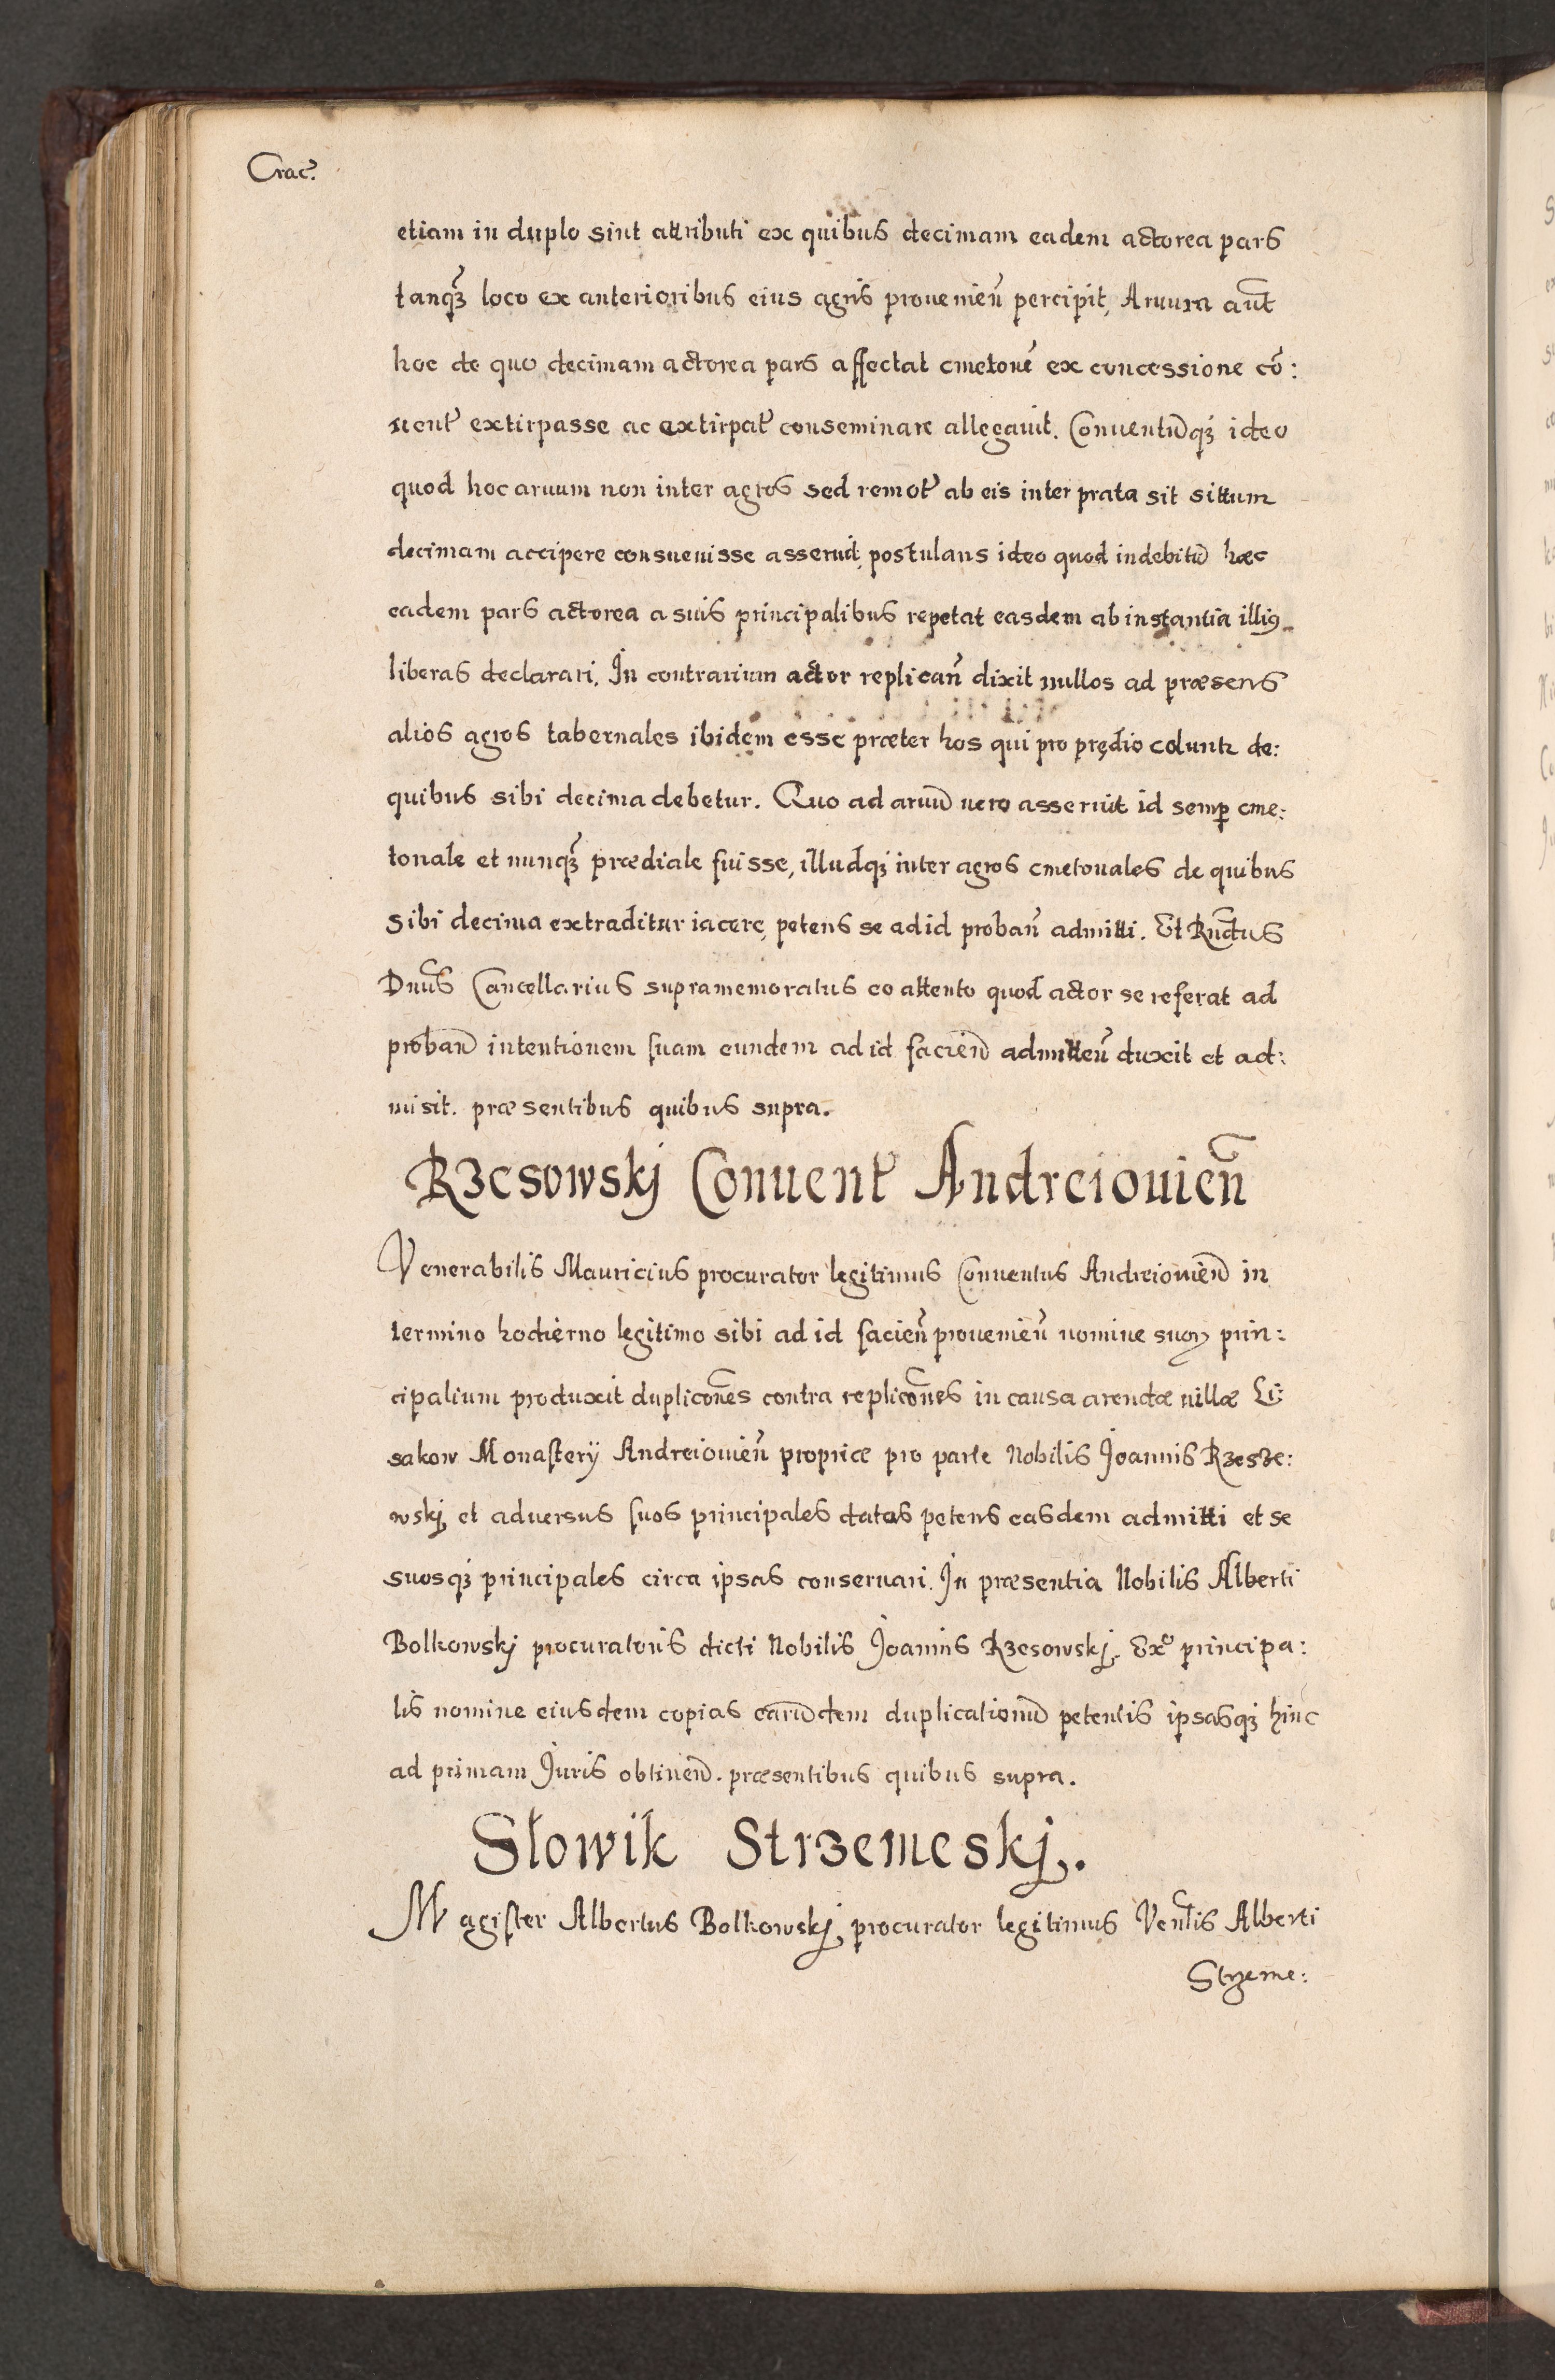 Crac̃.
etiam in duplo sint attributi ex quibus decimam eadem actorea pars
tanqꝫ loco ex anterioribus eius agris prouenien̄ percipit, Aruum aūt
hoc de quo decimam actorea pars affectat cmetonē ex concessione cō:
uent̃ extirpasse ac extirpat̃ conseminare allegauit. Conuentūqꝫ ideo
quod hoc aruum non inter agros sed remot̃ ab eis inter prata sit sittum
decimam accipere consueuisse asseruit, postulans ideo quod indebitū hæc
eadem pars actorea a suis principalibus repetat easdem ab instantia illiꝯ
liberas declarari. In contrarium actor replican̄ dixit nullos ad præsens
alios agros tabernales ibidem esse præter hos qui pro prędio coluntr de:
quibus sibi decima debetur. Quo ad aruū uero asseruit id semp cme:
tonale et nunqꝫ prædiale fuisse, illudqꝫ inter agros cmetonales de quibus
sibi decima extraditur iacere, petens se ad id proban̄ admitti. Et Rn̄dus
Dnūs Cancellarius supramemoratus eo attento quod actor se referat ad
proban̄ intentionem suam eundem ad id facien̄ admitten̄ duxit et ad:
misit. præsentibus quibus supra.
Rzesowskj Conuent̃ Andreiouien̄
Venerabilis Mauricius procurator legitimus Conuentus Andreiouien̄ in
termino hodierno legitimo sibi ad id facien̄ prouenien̄ nomine suoꝝ prin:
cipalium produxit duplicōnes contra replicōnes in causa arendæ uillæ Li:
sakow Monasterÿ Andreiouien̄ propriæ pro parte Nobilis Joannis Rzesze:
wskj et aduersus suos principales datas petens easdem admitti et se
suosqꝫ principales circa ipsas conseruari. In præsentia Nobilis Alberti
Bolkowskj procuratoris dicti Nobilis Joannis Rzesowskj. Exº principa:
lis nomine eiusdem copias earūdem duplicationū petentis ipsasqꝫ hinc
ad primam Juris obtinen̄. præsentibus quibus supra.
Słowik Strzemeskj.
Magister Albertus Bolkowskj procurator legitimus Ven̄lis Alberti
Strzeme: